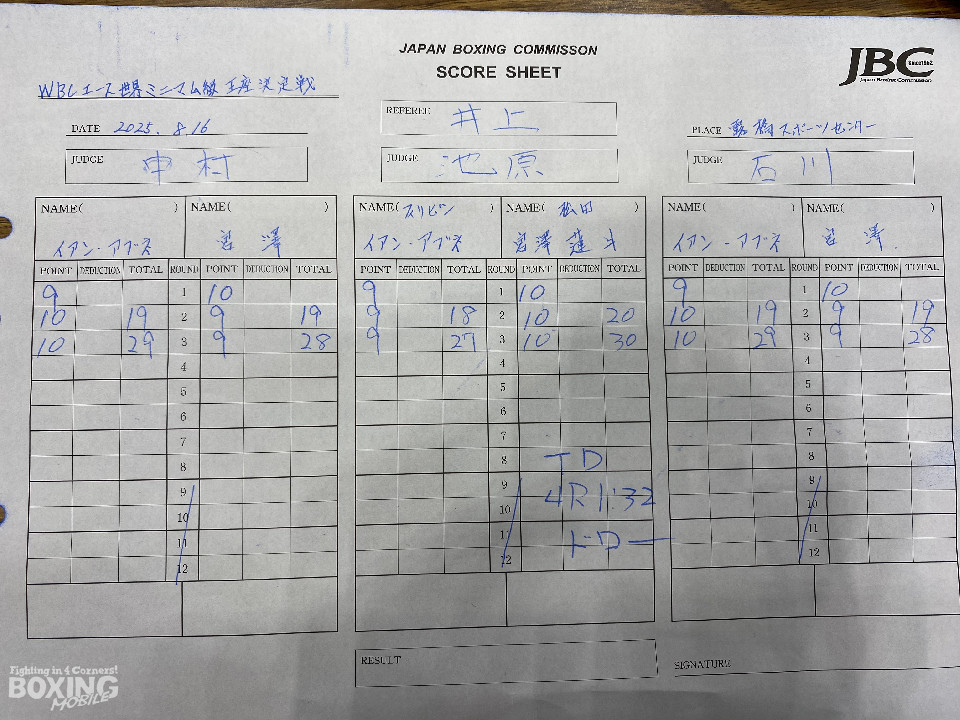 JAPAN BOXING COMMISSON
SCORE SHEET
JBC
Since1952
Japan Boxing Commission
WBCユース世界ミニマム級王座決定戦
DATE 2025. 8.16
REFEREE 井上
PLACE スポーツセンター
JUDGE 中村
JUDGE 池原
JUDGE 石川
NAME( ) NAME( )
イアン・アブネ 宮澤
NAME( フィリピン ) NAME( 松田 )
イアン・アブネ 宮澤蓮斗
NAME( ) NAME( )
イアン・アブネ 宮澤.
POINT DEDUCTION TOTAL ROUND POINT DEDUCTION TOTAL
9 1 10
10 19 2 9 19
10 29 3 9 28
4
5
6
7
8
9
10
11
12
POINT DEDUCTION TOTAL ROUND POINT DEDUCTION TOTAL
9 1 10
9 18 2 10 20
9 27 3 10 30
4
5
6
7
8 TD
9
10 4R1:32
11 ドロー
12
POINT DEDUCTION TOTAL ROUND POINT DEDUCTION TOTAL
9 1 10
10 19 2 9 19
10 29 3 9 28
4
5
6
7
8
9
10
11
12
RESULT
SIGNATURE
Fighting in 4 Corners!
BOXING
MOBILE